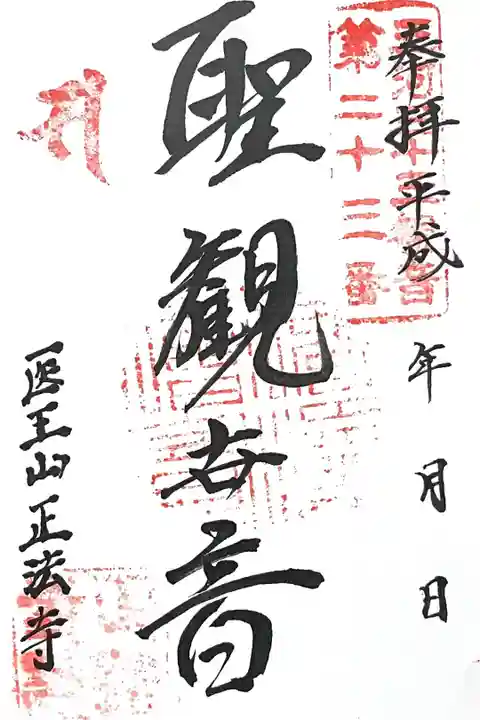 奉拝 平成 年 月 日
第二十三番
聖観世音
医王山正法寺